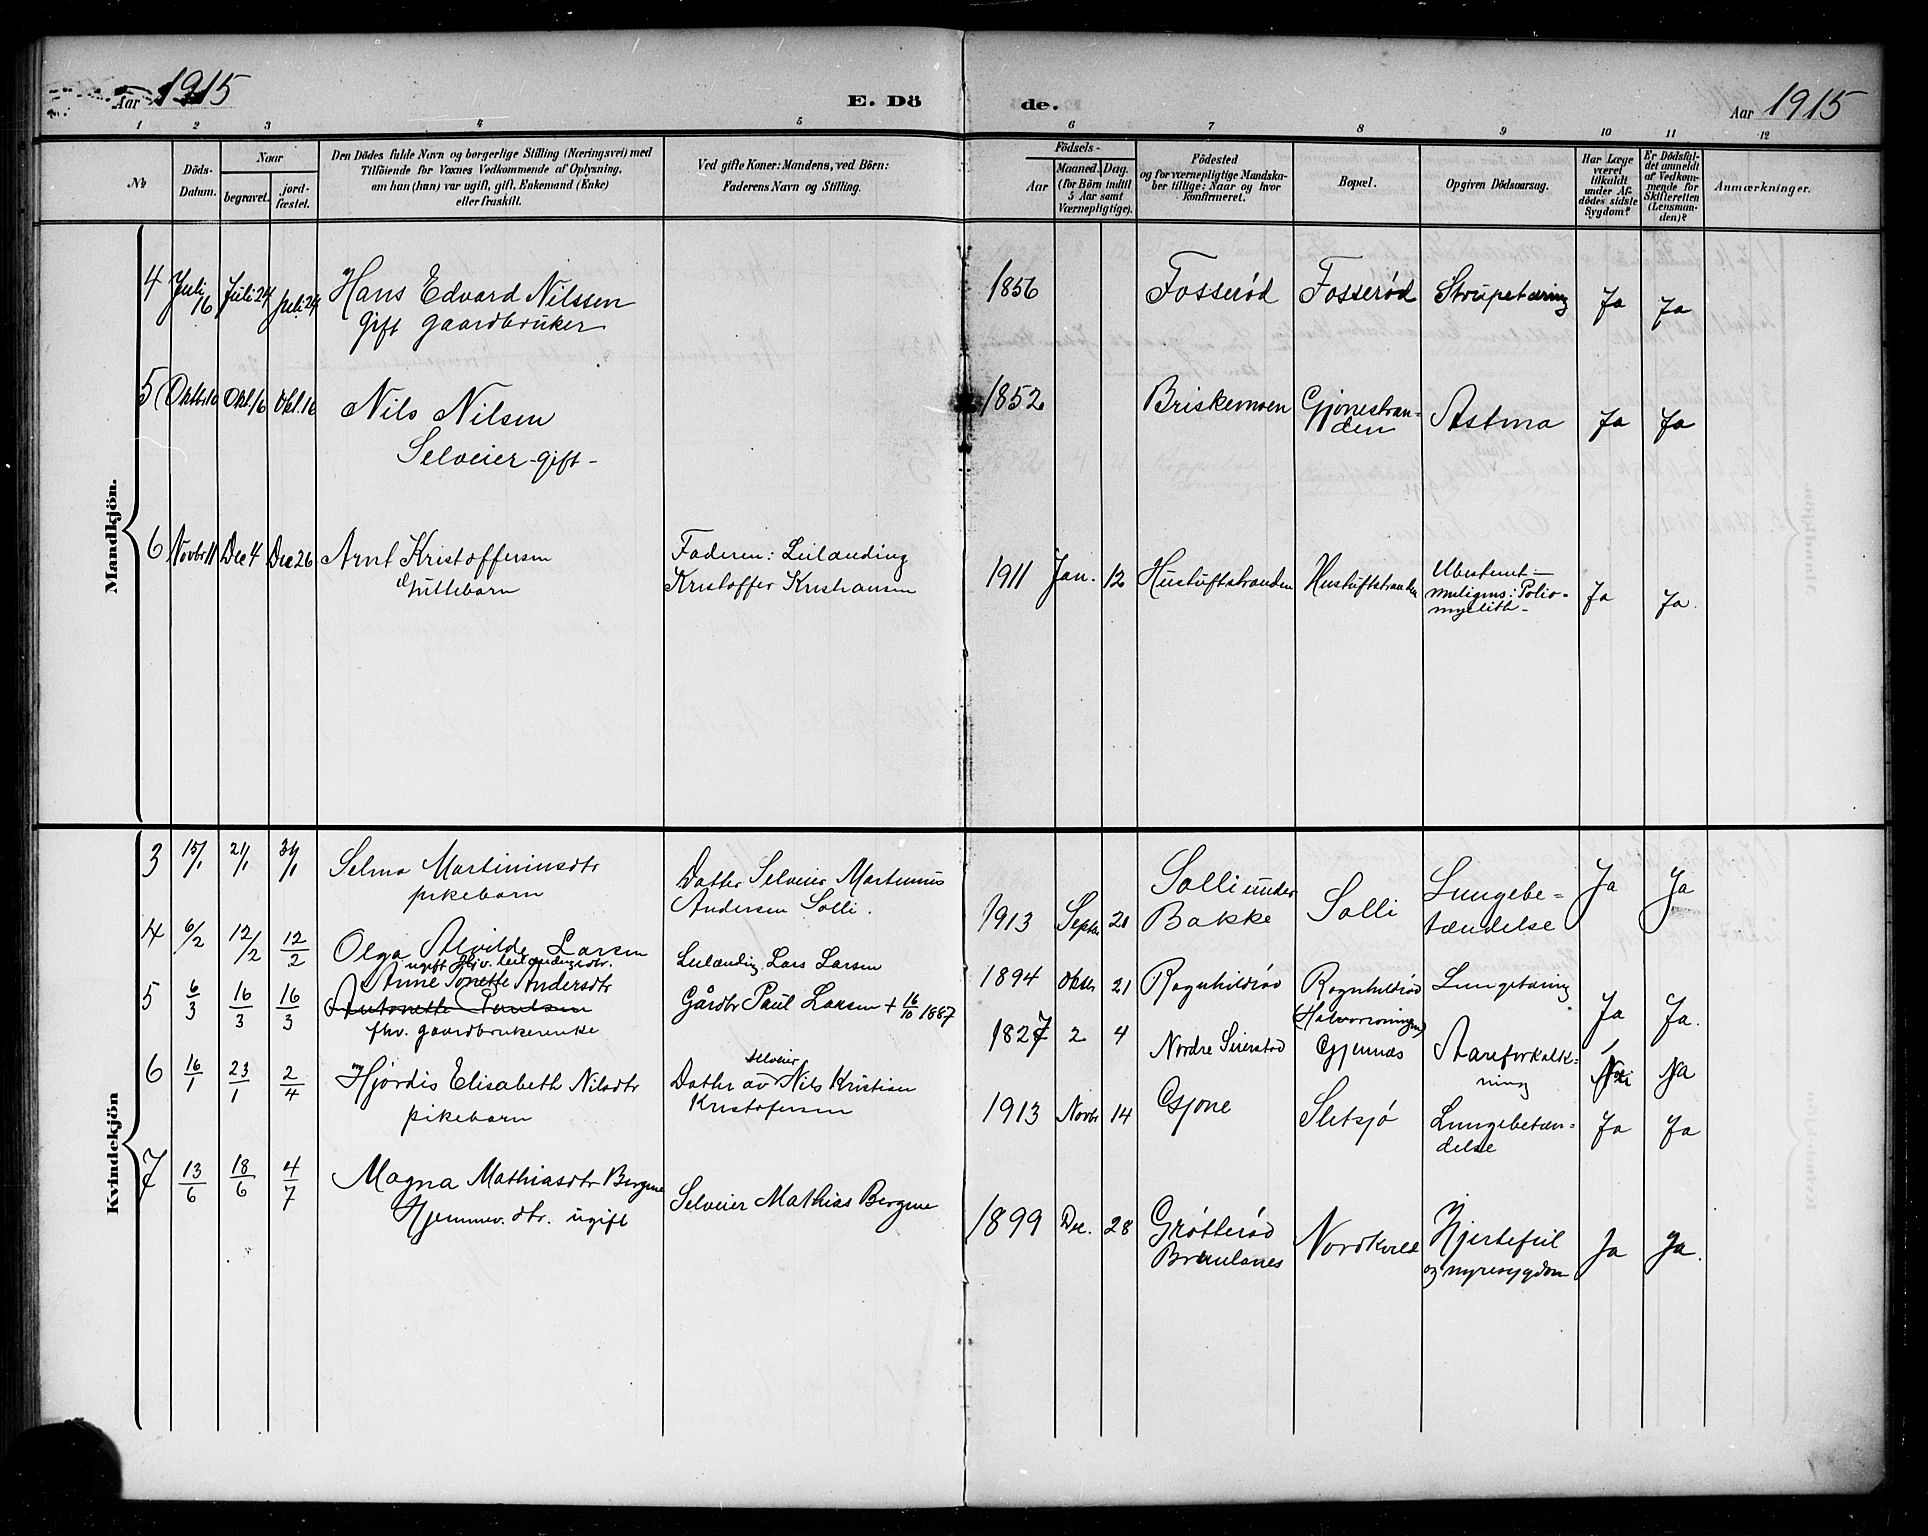 Aar 1915
E. Dö
de.
Aar 1915
1 2 3 4 5 6 7 8 9 10 11 12
№
Döds-
Datum.
Naar
begravet.
jord-
fæstet.
Den Dödes fulde Navn og borgerlige Stilling (Næringsvei) med
Tilföiende for Voxnes Vedkommende af Oplysning,
om han (hun) var ugift, gift, Enkemand (Enke)
eller fraskilt.
Ved gifte Koner: Mandens, ved Börn:
Faderens Navn og Stilling.
Födsels-
Aar
Maaned. Dag.
(for Börn indtil
5 Aar samt
Værnepligtige).
Födested
og for værnepligtige Mandska-
ber tillige: Naar og hvor
konfirmeret.
Bopæl.
Opgiven Dödsaarsag.
Har Læge
været
tilkaldt
under Af-
dödes sidste
Sygdom?
Er Dödsfal-
det anmeldt
af Vedkom-
mende for
Skifteretten
(Lensman-
den)?
Anmærkninger.
Mandkjön.
4 Juli 16 Juli 24 Juli 24 Hans Edvard Nilssen
gift gaardbruker
1856 Fosserød Fosserød Strupetæring Ja Ja
5 Oktbr 10 Okt. 16 Okt. 16 Nils Nilsen
Selveier - gift -
1852 Briskemoen Gjønestran-
den
Astma Ja Ja
6 Novbr 11 Dec 4 Dec 26 Arnt Kristoffersen
Guttebarn
Faderen: Leilænding
Kristoffer Kristiansen
1911 Jan. 12 Hustuftstranden Hustuftstranden
Ubestemt -
muligens: Polio-
myelith -
Ja Ja.
Kvindekjön
3 15/1 21/1 31/1 Selma Martiniusdtr
pikebarn
Datter Selveier Martinius
Andersen Solli.
1913 Septr 20 Solli under
Bakke
Solli
Lungebe-
tændelse
Ja Ja
4 6/2 12/2 12/2 Olga Alvilde Larsen
ugift Hjv. Leilændingsdtr.
Leilænding Lars Larsen
1894 Oktbr 21 Ragnhildrød Ragnhildrød Lungetæring Ja Ja.
5 6/3 16/3 16/3 Anne Tonette Andersdtr
Antonette Paulsen
fhv. gaardbrukerenke
Gårdbr Paul Larsen + 16/10 1887
1827 2 4 Nordre Seierstad
(Halvorsrøningen)
Gjennes
Aareforkalk-
ning
Nei Ja
6 16/1 23/1 2/4 Hjørdis Elisabeth Nilsdtr
pikebarn
Datter av selveier Nils Kristian
Kristofersen
1913 Novbr 14 Gjone Sletsjø
Lungebetæn-
delse
Ja Ja
7 13/6 18/6 4/7 Magna Mathiasdtr Bergene
Hjemmev. dtr. ugift
Selveier Mathias Bergene
1899 Dec. 28 Grøtterød
Brunlanes
Nordkveld
Hjertefeil
og nyresygdom
Ja Ja.